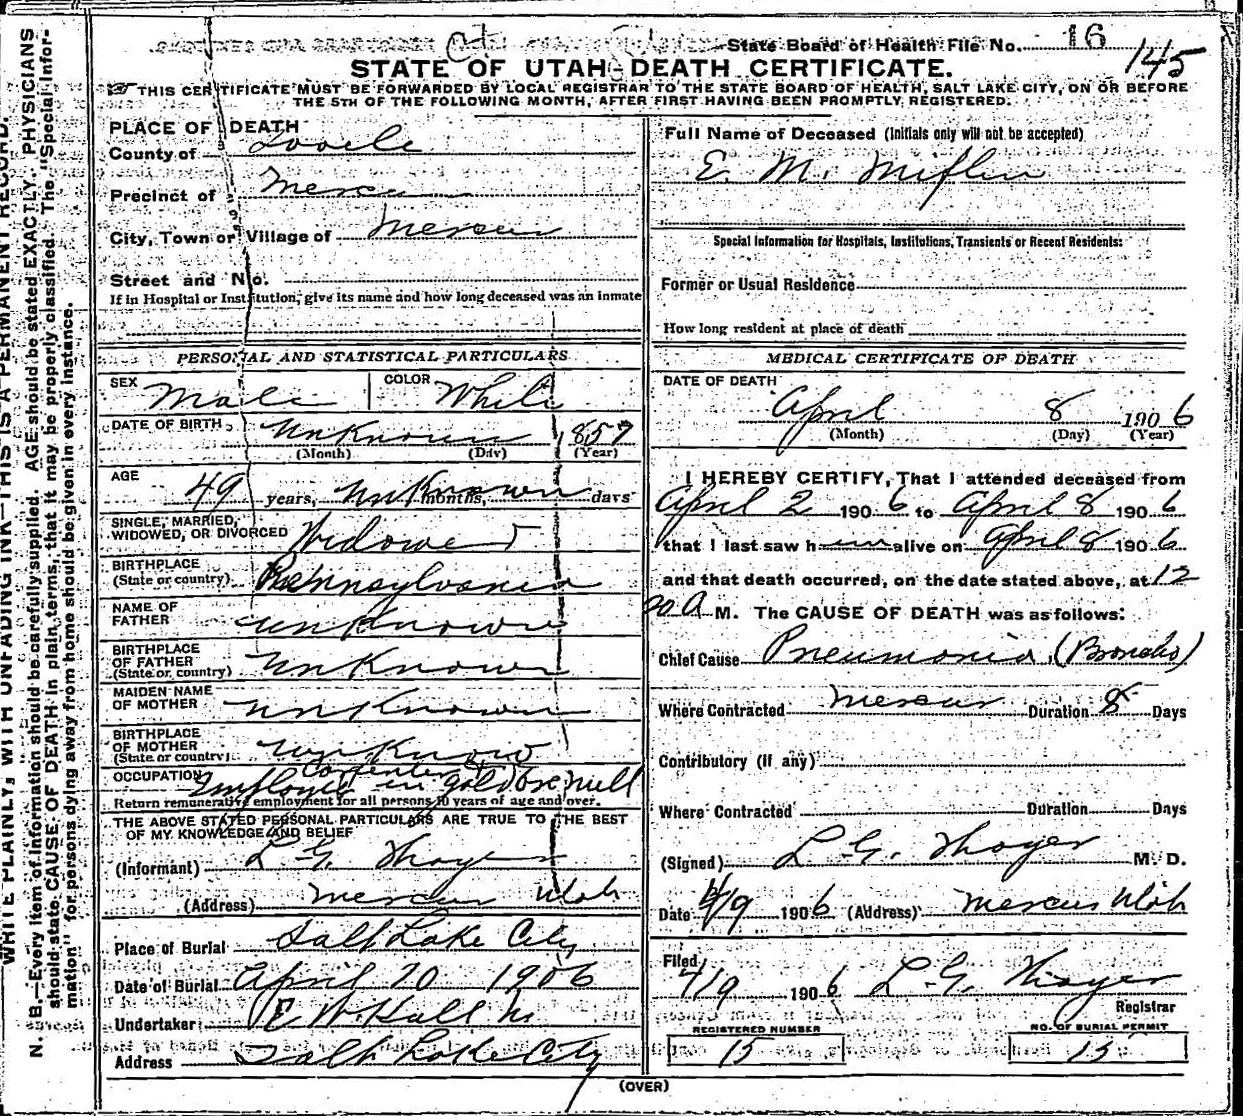 State Board of Health File No. 16
145
STATE OF UTAH DEATH CERTIFICATE.
THIS CERTIFICATE MUST BE FORWARDED BY LOCAL REGISTRAR TO THE STATE BOARD OF HEALTH, SALT LAKE CITY, ON OR BEFORE
THE 5TH OF THE FOLLOWING MONTH, AFTER FIRST HAVING BEEN PROMPTLY REGISTERED.
WRITE PLAINLY, WITH UNFADING INK—THIS IS A PERMANENT RECORD.
N. B.—Every item of information should be carefully supplied. AGE should be stated EXACTLY. PHYSICIANS
should state CAUSE OF DEATH in plain terms, that it may be properly classified. The "Special Infor-
mation" for persons dying away from home should be given in every instance.
PLACE OF DEATH
County of Tooele
Precinct of Mercur
City, Town or Village of Mercur
Street and No.
If in Hospital or Institution, give its name and how long deceased was an inmate
PERSONAL AND STATISTICAL PARTICULARS
SEX Male COLOR White
DATE OF BIRTH Unknown 1857
(Month) (Day) (Year)
AGE 49 years, unknown months, days
SINGLE, MARRIED,
WIDOWED, OR DIVORCED Widowed
BIRTHPLACE
(State or country) Pennsylvania
NAME OF
FATHER unknown
BIRTHPLACE
OF FATHER
(State or country) unknown
MAIDEN NAME
OF MOTHER unknown
BIRTHPLACE
OF MOTHER
(State or country) unknow
OCCUPATION Carpenter
Employed in gold ore mill
Return remunerative employment for all persons 10 years of age and over.
THE ABOVE STATED PERSONAL PARTICULARS ARE TRUE TO THE BEST
OF MY KNOWLEDGE AND BELIEF
(Informant) L. G. Thayer
(Address) Mercur Utah
Place of Burial Salt Lake City
Date of Burial April 10 1906
Undertaker E. W. Hall
Address Salt Lake City
Full Name of Deceased (Initials only will not be accepted)
E. M. Miflin
Special Information for Hospitals, Institutions, Transients or Recent Residents:
Former or Usual Residence
How long resident at place of death
MEDICAL CERTIFICATE OF DEATH
DATE OF DEATH
April 8 1906
(Month) (Day) (Year)
I HEREBY CERTIFY, That I attended deceased from
April 2 1906 to April 8 1906
that I last saw him alive on April 8 1906
and that death occurred, on the date stated above, at 12
30 A M. The CAUSE OF DEATH was as follows:
Chief Cause Pneumonia, (Broncho)
Where Contracted Mercur Duration 8 Days
Contributory (If any)
Where Contracted Duration Days
(Signed) L. G. Thayer M. D.
Date 4/9 1906 (Address) Mercur Utah
Filed
4/9 1906 L. G. Thayer
Registrar
REGISTERED NUMBER
15
NO. OF BURIAL PERMIT
15
(OVER)